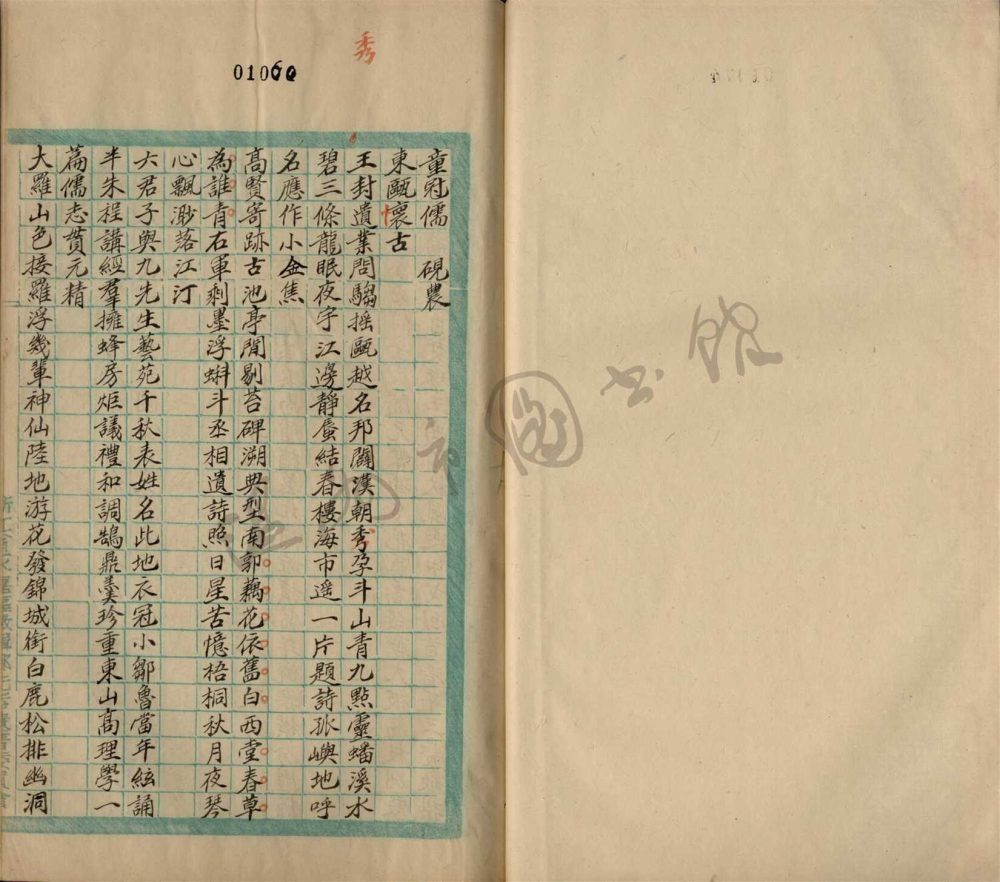 秀
01060
童冠儒　硯農
東甌懷古
王封遺業問騶摇甌越名邦闢漢朝秀孕斗山青九點靈蟠溪水
碧三條龍眠夜宇江邊靜蜃結春樓海市遥一片題詩孤嶼地呼
名應作小金焦
高賢寄跡古池亭閒剔苔碑溯典型南郭藕花依舊白西堂春草
為誰青右軍剩墨浮蝌斗丞相遺詩照日星苦憶梧桐秋月夜琴
心飄渺落江汀
六君子與九先生藝苑千秋表姓名此地衣冠小鄒魯當年絃誦
半朱程講經羣擁蜂房炬議禮和調鵠鼎羹珍重東山高理學一
篇儒志貫元精
大羅山色接羅浮幾輩神仙陸地游花發錦城街白鹿松排幽洞
圖書館